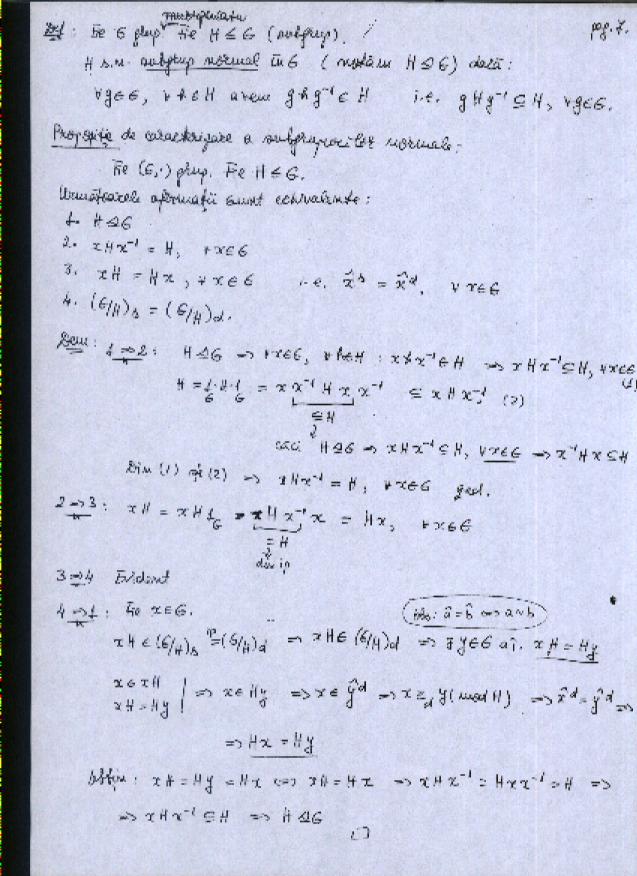 multiplicativ
pag. 7.
Def: Fie G grup Fie H ≤ G (subgrup).
H s.n. subgrup normal în G (notăm H ⊴ G) dacă:
∀g∈G, ∀h∈H avem ghg⁻¹∈H i.e. gHg⁻¹ ⊆ H, ∀g∈G.
Propoziție de caracterizare a subgrupurilor normale:
Fie (G,·) grup. Fie H ≤ G.
Următoarele afirmații sunt echivalente:
1. H ⊴ G
2. xHx⁻¹ = H, ∀x∈G
3. xH = Hx, ∀x∈G i.e. x̂ˢ = x̂ᵈ, ∀x∈G
4. (G/H)s = (G/H)d.
Dem: 1⇒2: H ⊴ G ⇒ ∀x∈G, ∀h∈H : xhx⁻¹∈H ⇒ xHx⁻¹⊆H, ∀x∈G (1)
H = 1_G·H·1_G = x x⁻¹ H x x⁻¹ ⊆ xHx⁻¹, (2)
⊆H
căci H ⊴ G ⇒ xHx⁻¹⊆H, ∀x∈G ⇒ x⁻¹Hx⊆H
Din (1) și (2) ⇒ xHx⁻¹ = H, ∀x∈G qed.
2⇒3: xH = xH1_G = xHx⁻¹x = Hx, ∀x∈G
=H
din ip
3⇒4 Evident
4⇒1: Fie x∈G. Obs: â = b̂ ⇔ a~b
xH∈(G/H)s =ᶦᵖ (G/H)d ⇒ xH∈(G/H)d ⇒ ∃y∈G aî. xH = Hy
x∈xH
xH=Hy | ⇒ x∈Hy ⇒ x∈ŷᵈ ⇒ x≡_d y(mod H) ⇒ x̂ᵈ = ŷᵈ ⇒
⇒ Hx = Hy
Obțin: xH = Hy = Hx ⇔ xH = Hx ⇒ xHx⁻¹ = Hxx⁻¹ = H ⇒
⇒ xHx⁻¹⊆H ⇒ H ⊴ G
□